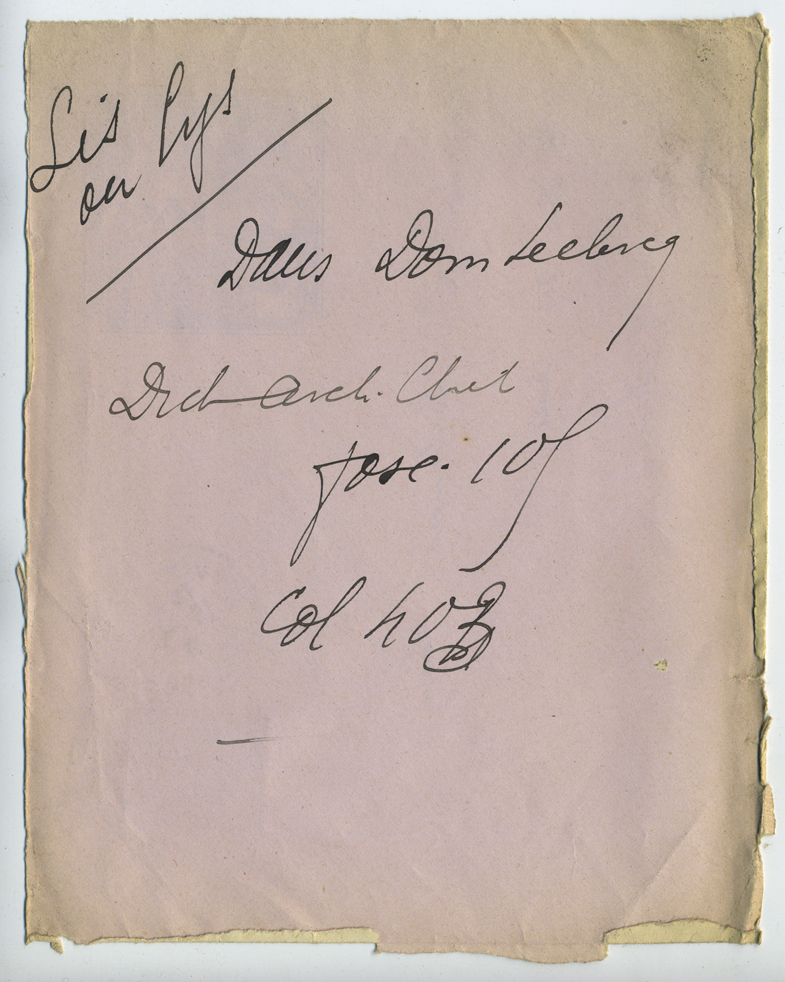 Lis ou lys
Dans Dom Leclercq
Dict arch. Chret
fasc. 10
Col 40